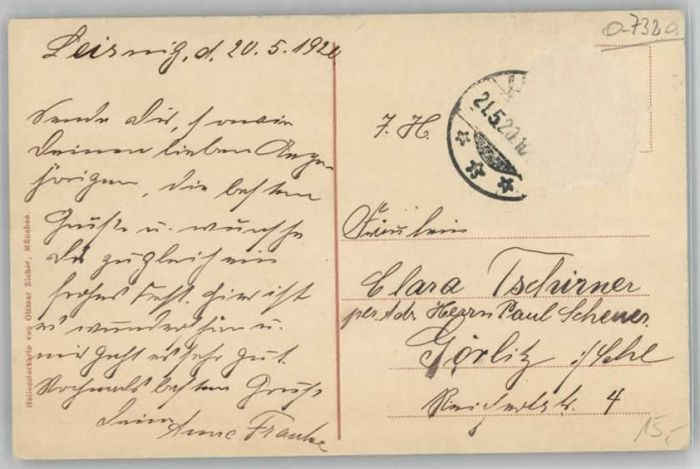 Leisnig, d. 20.5.1920
Sende Dir, sowie
Deinen lieben Ange-
hörigen, die besten
Grüße u. wünsche
Dir zugleich ein
frohes Fest. Hier ist
es wunderschön u.
mir geht es sehr gut.
Nochmals besten Gruß
Deine
Anne Franke
Heliocolorkarte von Ottmar Zieher, München.
0-7320
21.5.20.10
F. H.
Fräulein
Clara Tschirner
per Adr. Herrn Paul Scheuer.
Görlitz i/Schl
Reichertstr. 4
15,-